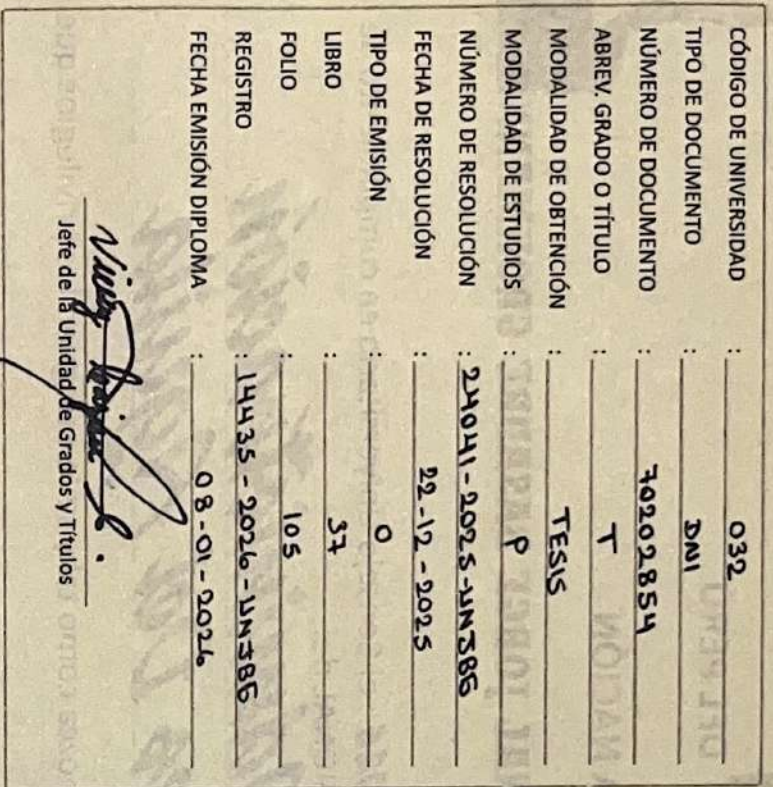 CÓDIGO DE UNIVERSIDAD : 032
TIPO DE DOCUMENTO : DNI
NÚMERO DE DOCUMENTO : 70202854
ABREV. GRADO O TÍTULO : T
MODALIDAD DE OBTENCIÓN : TESIS
MODALIDAD DE ESTUDIOS : P
NÚMERO DE RESOLUCIÓN : 24041-2025-UNJBG
FECHA DE RESOLUCIÓN : 22-12-2025
TIPO DE EMISIÓN : O
LIBRO : 37
FOLIO : 105
REGISTRO : 14435-2026-UNJBG
FECHA EMISIÓN DIPLOMA : 08-01-2026
Jefe de la Unidad de Grados y Títulos